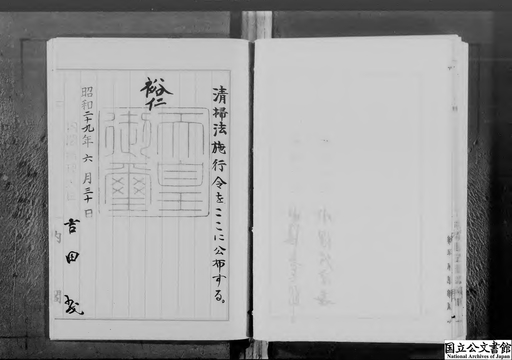 清掃法施行令をここに公布する。
裕仁
天皇
御璽
昭和二十九年六月三十日
吉田茂
国立公文書館
National Archives of Japan